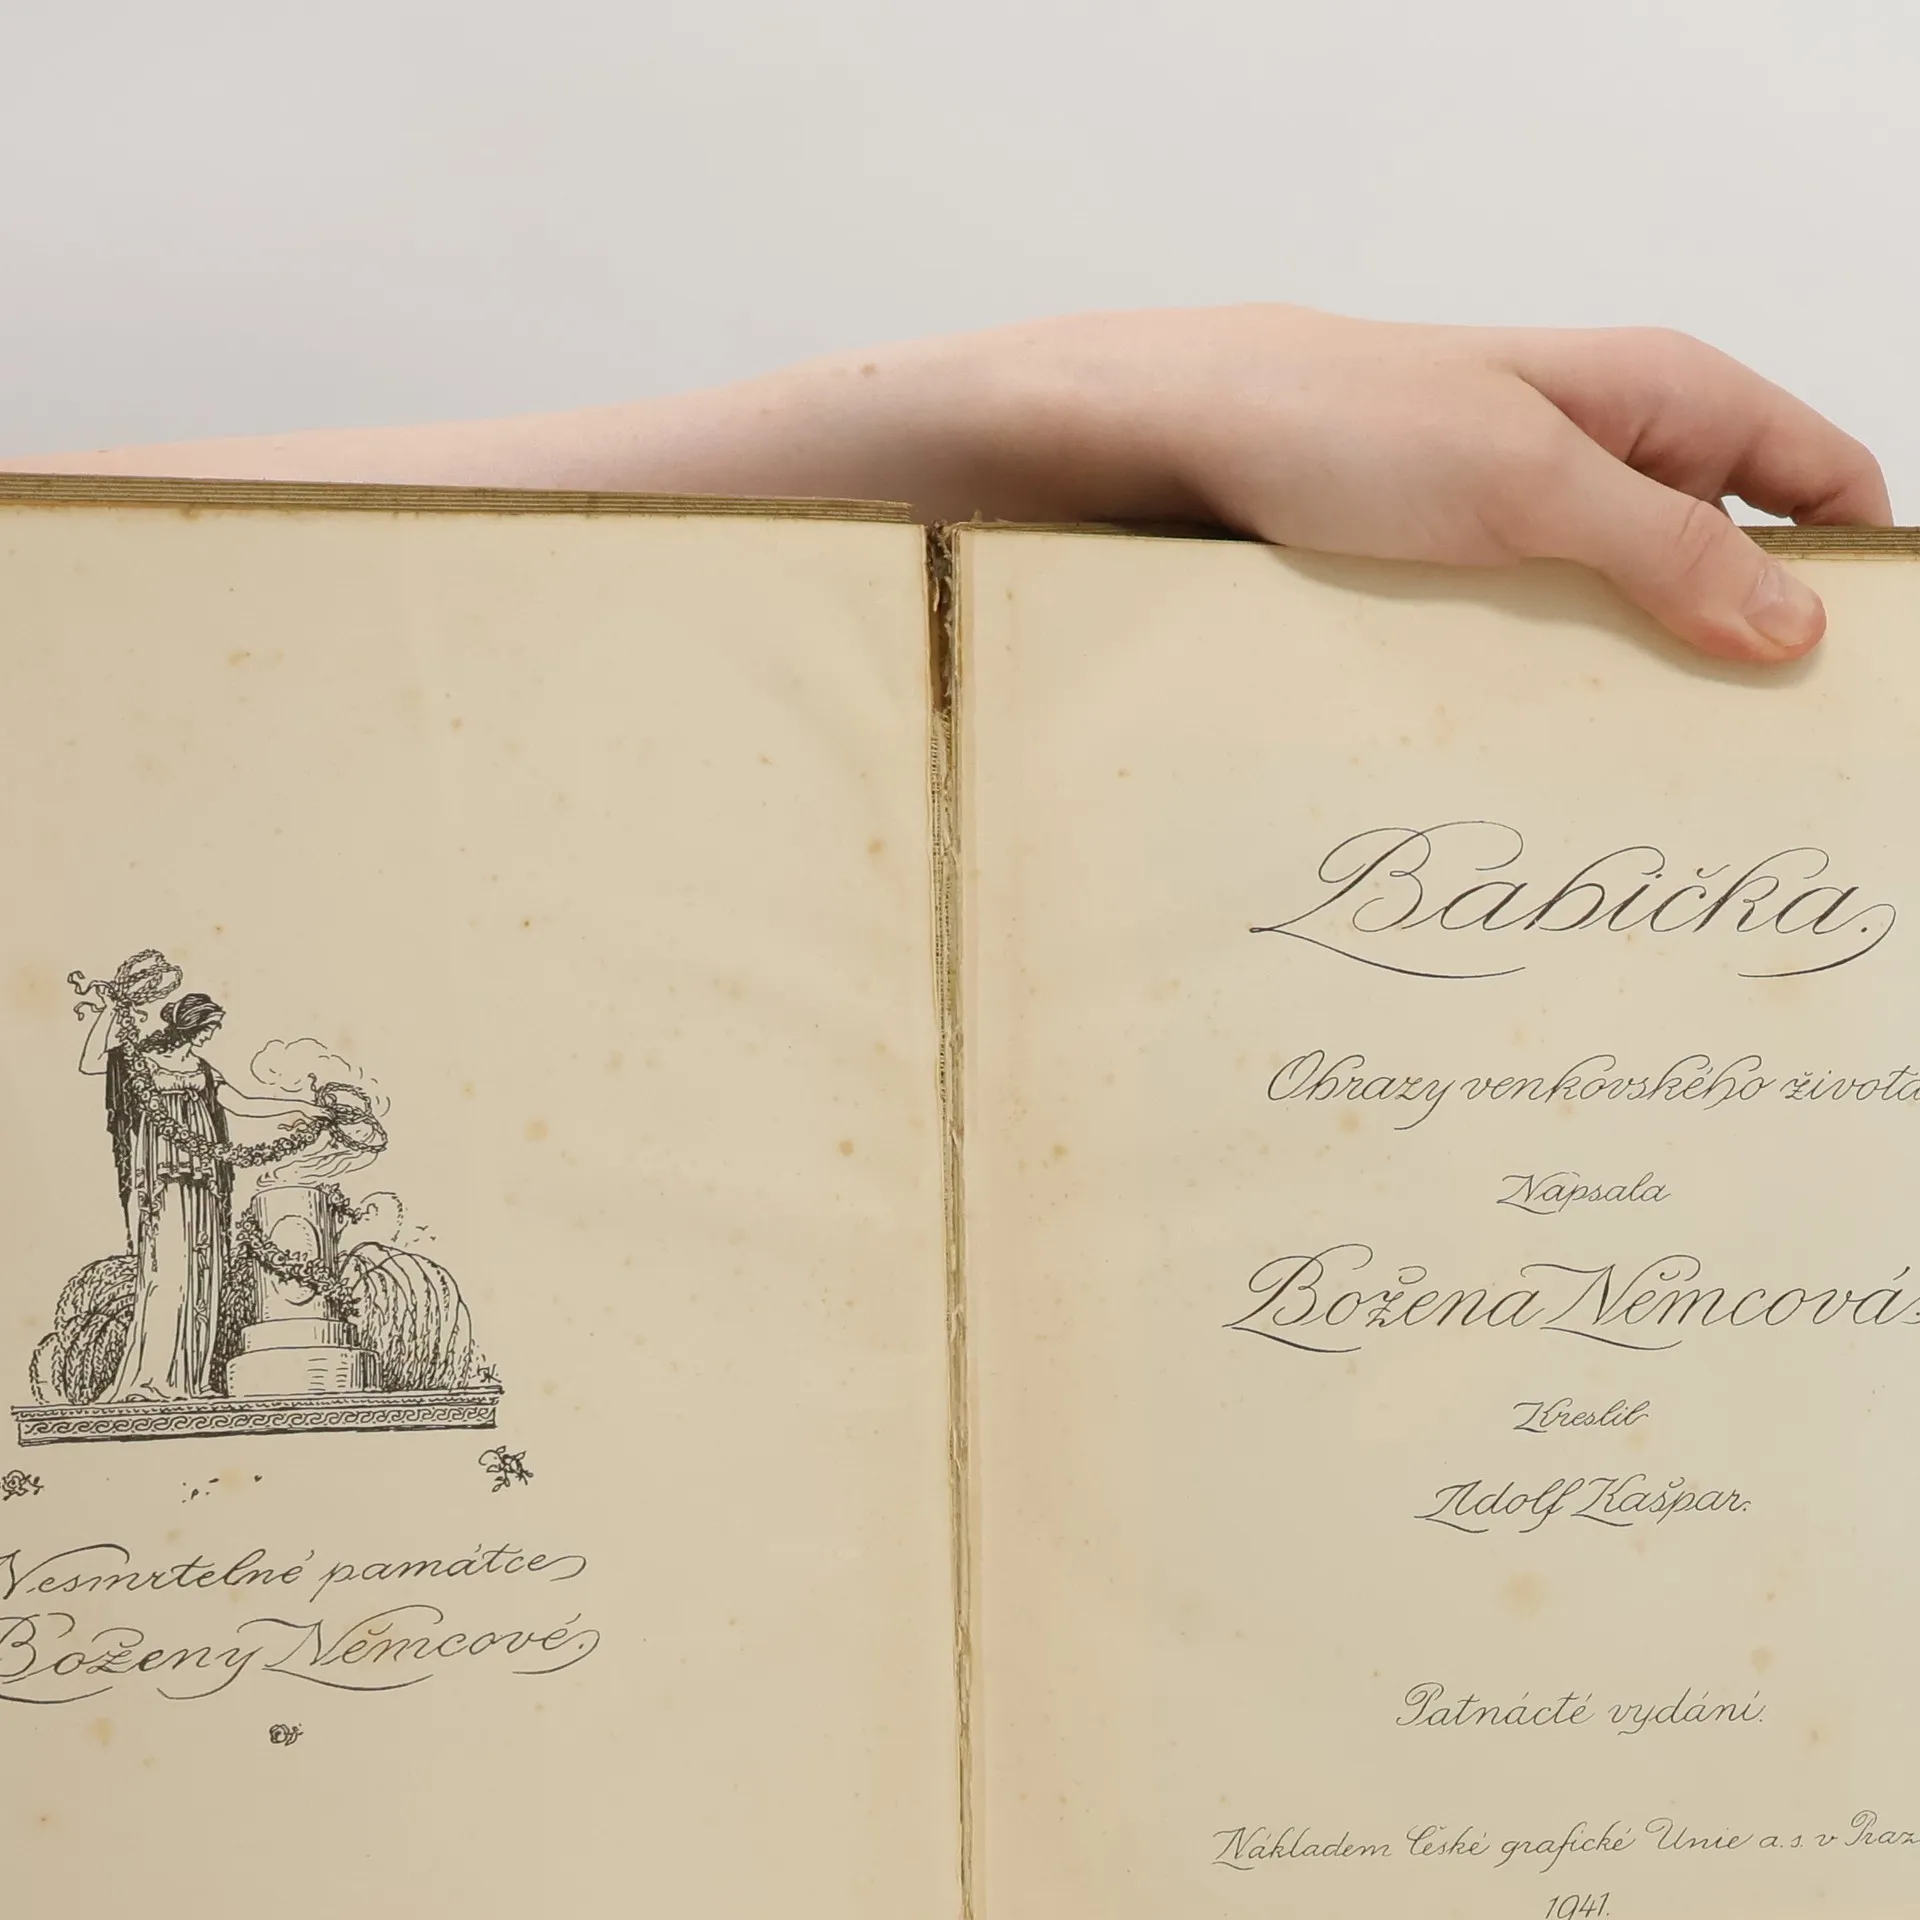 Nesmrtelné památce
Boženy Němcové.
Babička.
Obrazy venkovského života
Napsala
Božena Němcová.
Kreslil
Adolf Kašpar.
Patnácté vydání.
Nákladem České grafické Unie a.s. v Praz
1941.